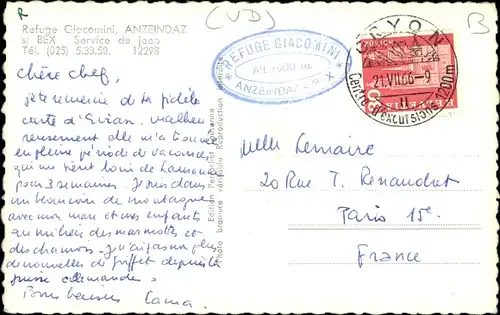 R
(VD)
B
Refuge Giacomini, ANZEINDAZ
s/ BEX Service de jeep
Tél. (025) 5.33.50. 12298
* REFUGE GIACOMINI *
Alt. 1900 m.
ANZEINDAZ s. BEX
GRYON
21.VII.66-9
Centre d'excursions 1200m
HELVETIA
Chère Chef,
je te remercie de ta fidèle
carte d'Evian. Malheu
reusement elle m'a trouvée
en pleine période de vacances
qui me tient loin de Lausanne
pour 3 semaines. Je suis dans
un blanc de montagnes
avec mon mari et mes enfants
au milieu des marmottes et
des chamois. Je n'ai pas eu plus
de nouvelles de Griffet depuis
Suisse allemande.
Bons baisers Cama
Edition Perrochet Lausanne
Photo bromure véritable Reproduction interdite
Mlle Lemaire
20 Rue T. Renaudot
Paris 15e.
France